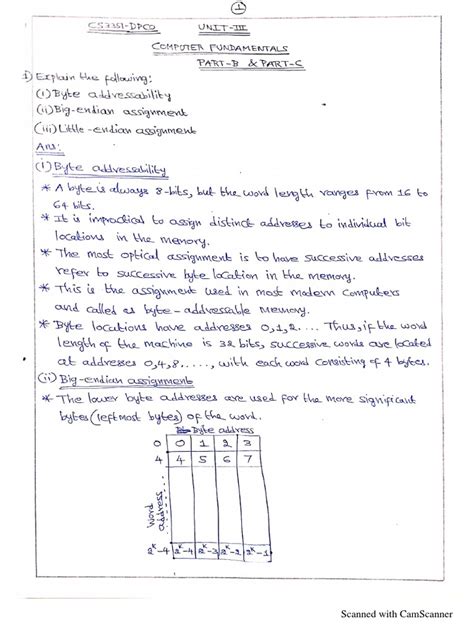 1
CS3351-DPCO UNIT-III
COMPUTER FUNDAMENTALS
PART-B & PART-C
1) Explain the following:
(i) Byte addressability
(ii) Big-endian assignment
(iii) Little-endian assignment
Ans:
(i) Byte addressability
* A byte is always 8-bits, but the word length ranges from 16 to
64 bits.
* It is impractical to assign distinct addresses to individual bit
locations in the memory.
* The most optical assignment is to have successive addresses
refer to successive byte location in the memory.
* This is the assignment used in most modern computers
and called as byte-addressable memory.
* Byte locations have addresses 0,1,2.... Thus, if the word
length of the machine is 32 bits, successive words are located
at addresses 0,4,8....., with each word consisting of 4 bytes.
(ii) Big-endian assignment
* The lower byte addresses are used for the more significant
bytes (leftmost bytes) of the word.
Byte address
0 0 1 2 3
4 4 5 6 7
Word address
2^k-4 2^k-4 2^k-3 2^k-2 2^k-1
Scanned with CamScanner